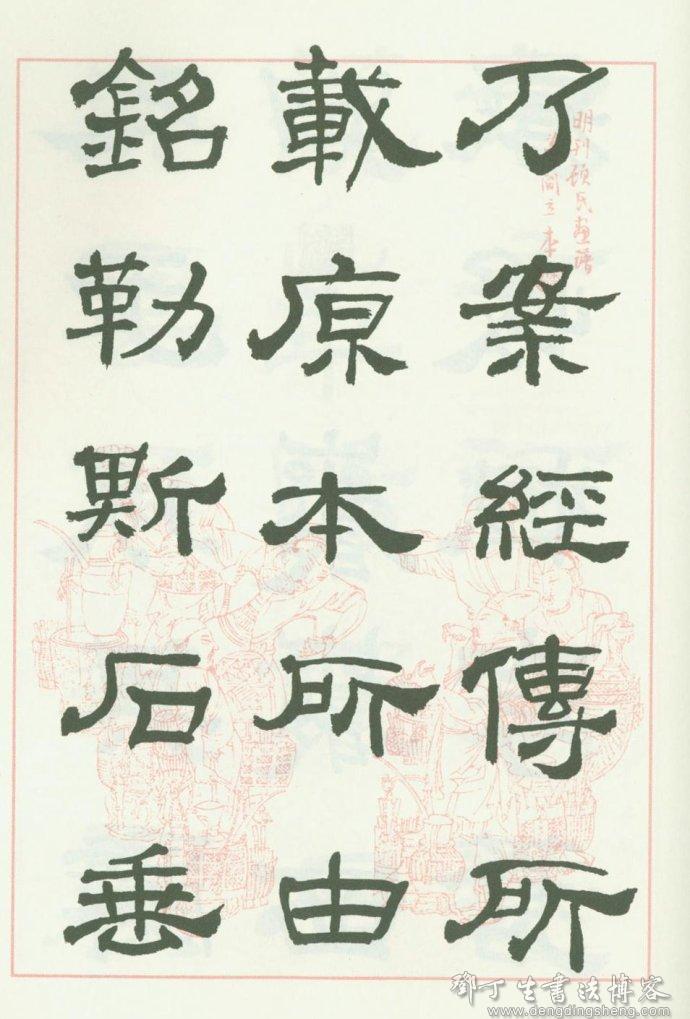 乃案經傳所
載原本所由
銘勒斯石垂
明刊顧氏畫譜
閻立本
鄧丁生書法博客
www.dengdingsheng.com